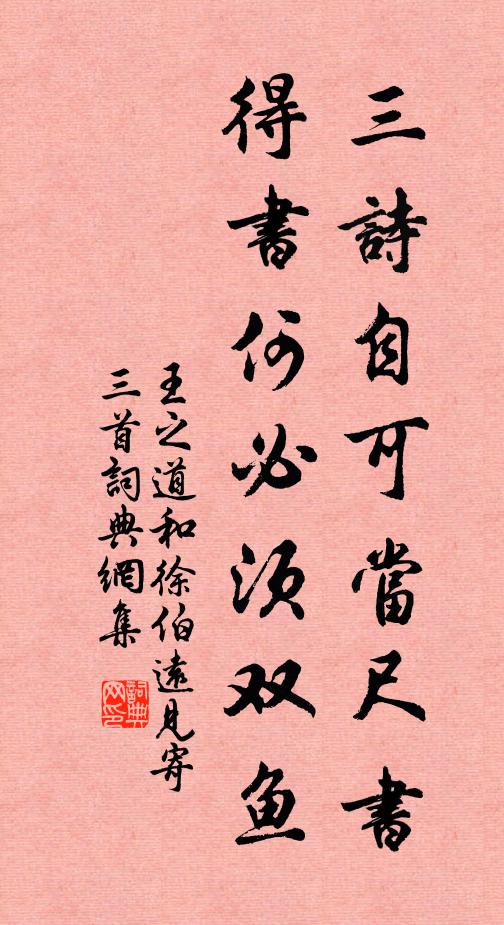 三詩自可當尺书
得書何必須双鱼
王之道和徐伯遠見寄
三首詞典網集
詞典网印